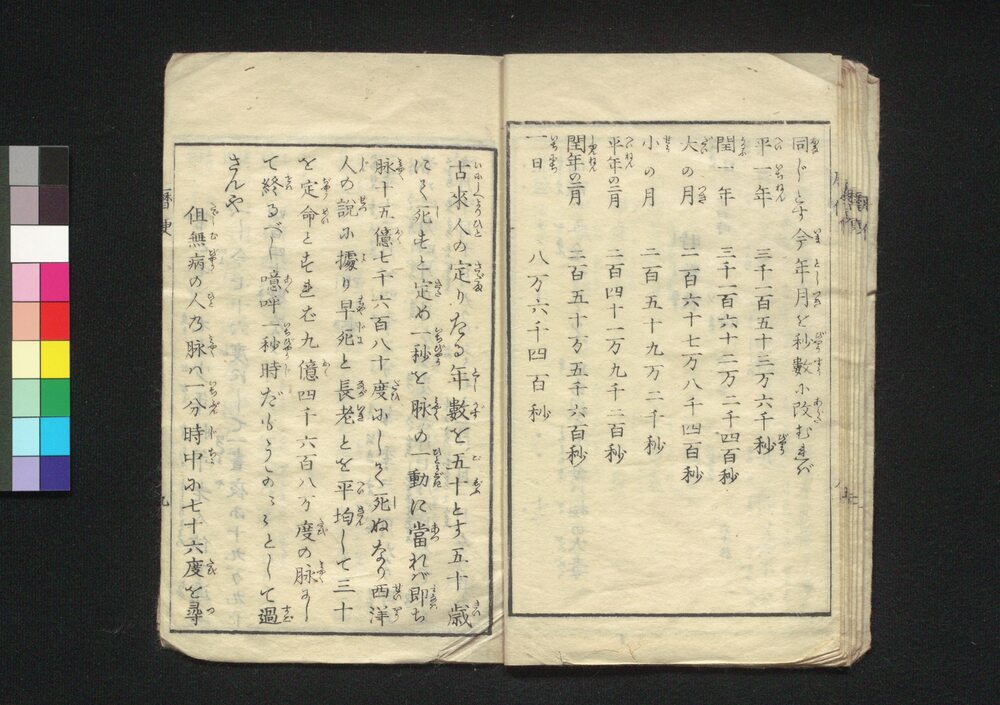 同じとす今年月を秒數に改むれば
平一年 三千一百五十三万六千秒
閏一年 三千一百六十二万二千四百秒
大の月 二百六十七万八千四百秒
小の月 二百五十九万二千秒
平年の二月 二百四十一万九千二百秒
閏年の二月 二百五十万五千六百秒
一日 八万六千四百秒
古來人の定りたる年數を五十とす五十歳
にて死すと定め一秒を脉の一動に當れば即ち
脉十五億七千六百八十度にして死ぬなり西洋
人の說に據り早死と長老とを平均して三十
を定命とすれば九億四千六百八万度の脉にし
て終るべし噫呼一秒時だもうかうかとして過
さんや
但無病の人乃脉ハ一分時中に七十六度を尋
曆便
九